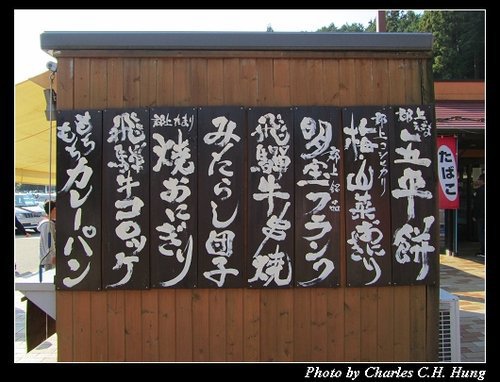 郡上
五平餅
郡上コシヒカリ
梅・山菜おにぎり
明宝フランク
郡上
飛騨牛串焼
みたらし団子
郡上たまり
焼おにぎり
飛騨牛コロッケ
もちもちカレーパン
たばこ
Photo by Charles C.H. Hung